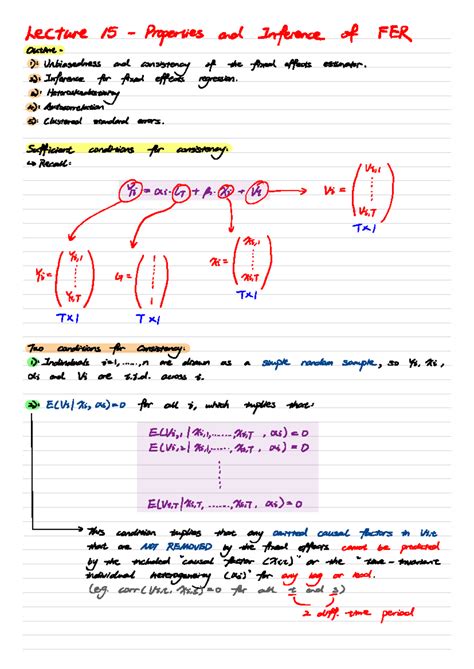 Lecture 15 - Properties and Inference of FER
Outline -
1): Unbiasedness and consistency of the fixed effects estimator.
2): Inference for fixed effects regression.
3): Heteroskedasticity
4): Autocorrelation
5): Clustered standard errors.
Sufficient conditions for consistency.
↳ Recall:
Yi = αi · ιT + βi · Xi + Vi → Vi = (Vi,1 ⋮ Vi,T)
T×1
Yi = (Yi,1 ⋮ Yi,T) ιT = (1 ⋮ 1) xi = (xi,1 ⋮ xi,T)
T×1 T×1 T×1
Two conditions for Consistency:
1): Individuals i=1,....,n are drawn as a simple random sample, so Yi, xi,
αi and Vi are i.i.d. across i.
2): E(Vi | xi, αi) = 0 for all i, which implies that:
E(Vi,1 | xi,1, ......, xi,T , αi) = 0
E(Vi,2 | xi,1, ......, xi,T , αi) = 0
⋮
E(Vi,T | xi,T, ......, xi,T , αi) = 0
This condition implies that any omitted causal factors in Vi,t
that are NOT REMOVED by the fixed effects cannot be predicted
by the included "causal factor (Xi,t) or the "time-invariant
individual heterogeneity (αi)" for any lag or lead.
(e.g. corr(Vi,t, Xi,s) = 0 for all t and s)
2 diff. time period